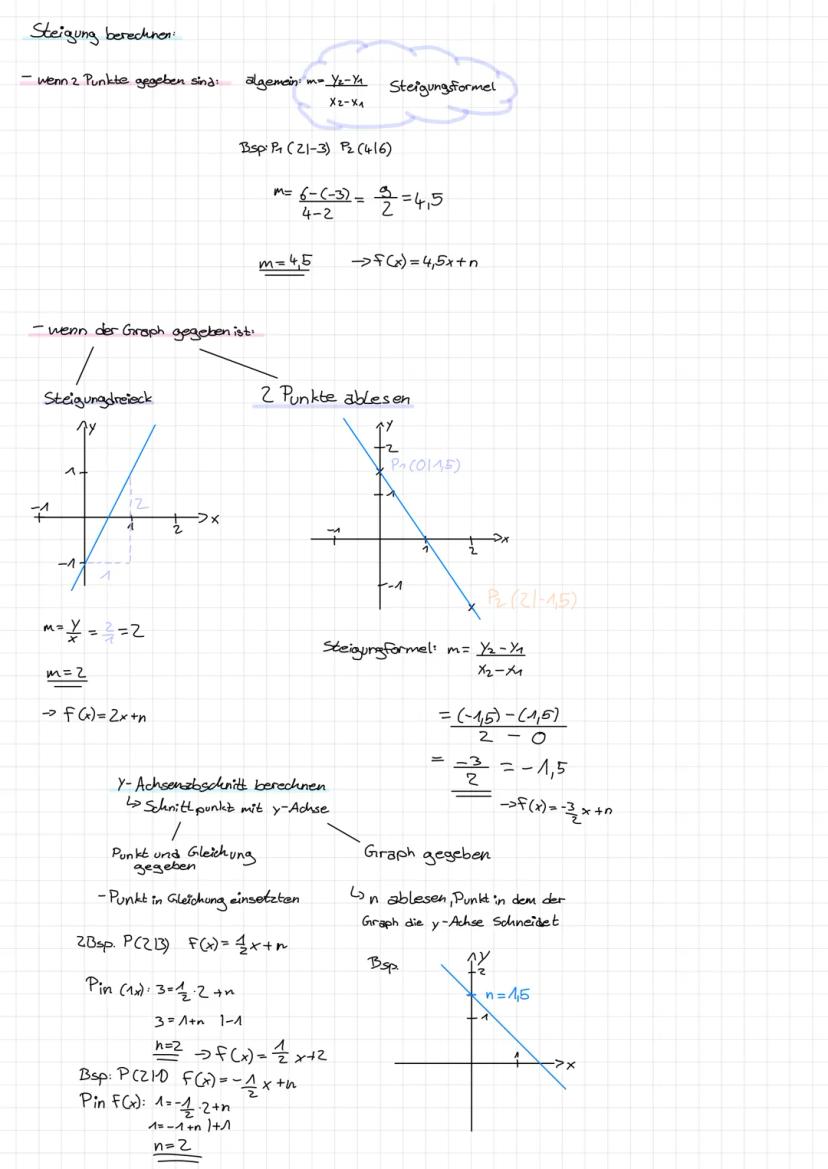 Steigung berechnen:
- wenn 2 Punkte gegeben sind: algemein: m= y₂-y₁ / x₂-x₁ Steigungsformel
Bsp: P₁(2|-3) P₂(4|6)
m= 6-(-3) / 4-2 = 9/2 = 4,5
m=4,5 → f(x)=4,5x+n
- wenn der Graph gegeben ist:
Steigungdreieck
y
1
-1
1
2
x
-1
2
1
m= y/x = 2/1 = 2
m=2
→ f(x)=2x+n
2 Punkte ablesen
y
2
P₁(0|1,5)
1
-1
1
2
x
-1
P₂(2|-1,5)
Steigungsformel: m= y₂-y₁ / x₂-x₁
= (-1,5)-(1,5) / 2 - 0
= -3/2 = -1,5
→ f(x)=-3/2 x+n
y-Achsenabschnitt berechnen
↳ Schnittpunkt mit y-Achse
Punkt und Gleichung
gegeben
- Punkt in Gleichung einsetzten
2Bsp. P(2|3) f(x)= 1/2 x+n
P in (1x): 3= 1/2 · 2 +n
3=1+n |-1
n=2 → f(x)= 1/2 x+2
Bsp: P(2|1) f(x)= -1/2 x+n
P in f(x): 1= -1/2 · 2+n
1=-1+n |+1
n=2
Graph gegeben
↳ n ablesen, Punkt in dem der
Graph die y-Achse Schneidet
Bsp.
y
2
n=1,5
1
1
x